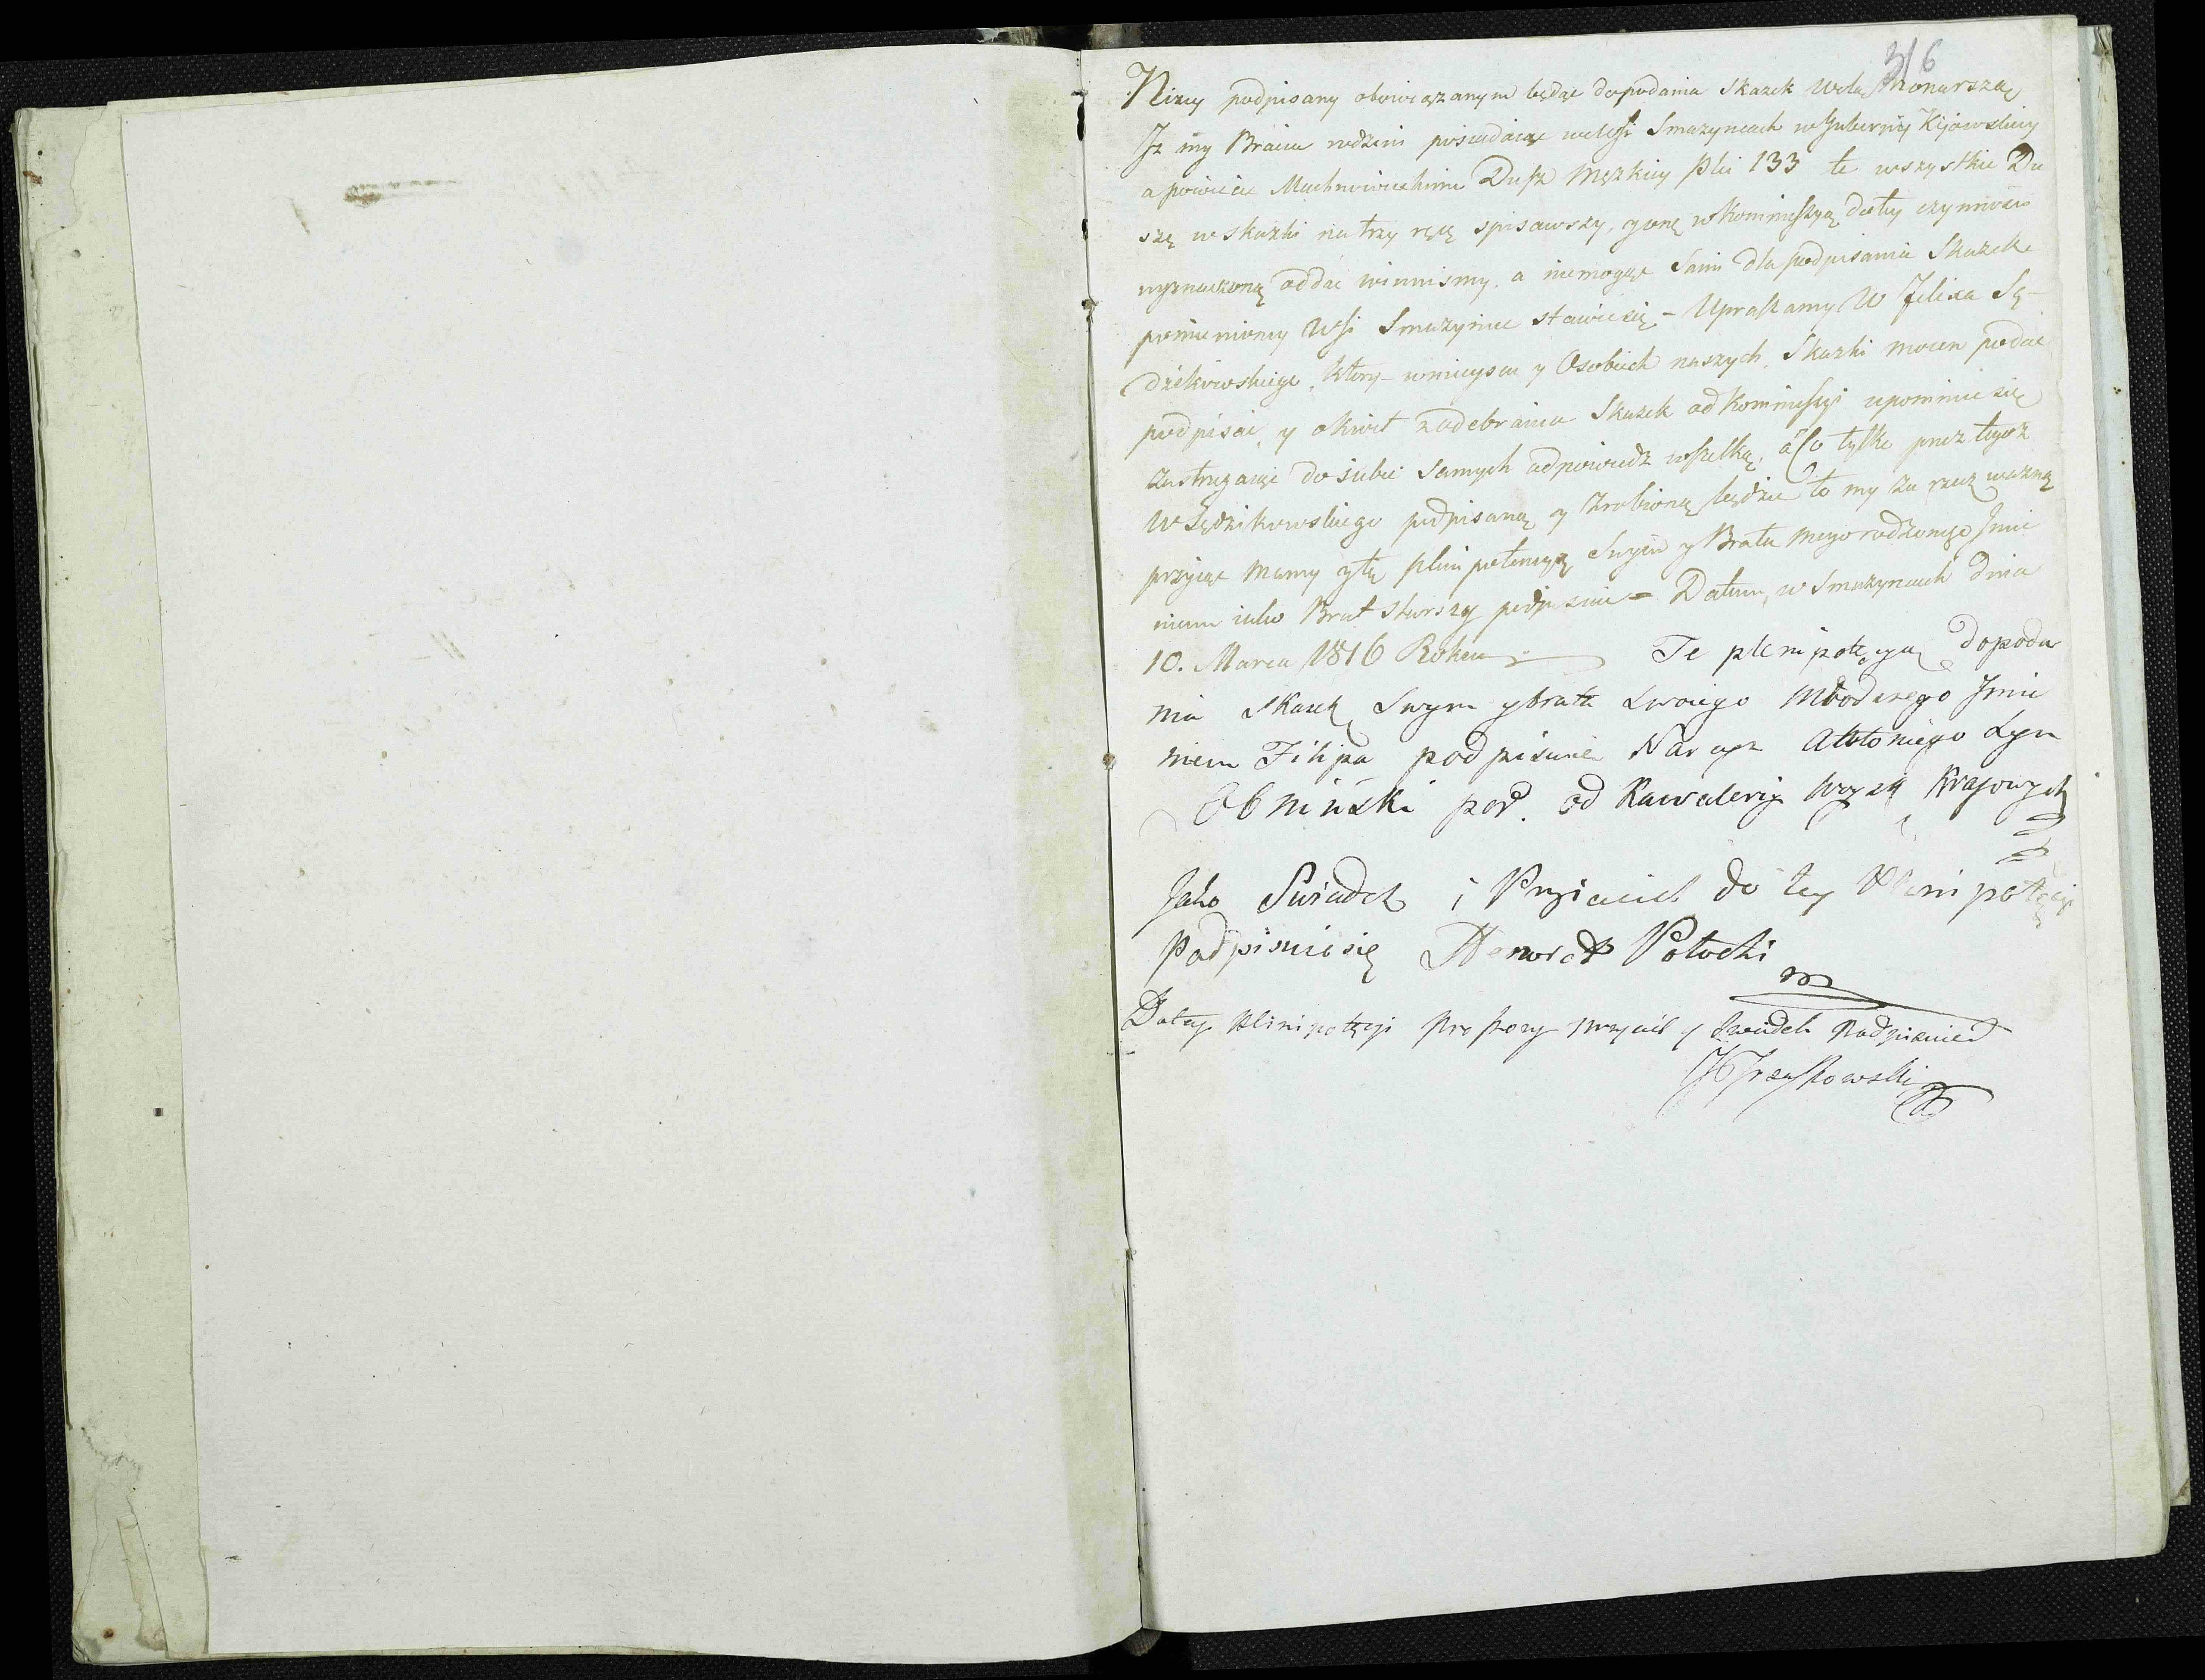 316
Niżey podpisany obowiązanym będąc do podania Skazek Wolą Monarszą
Iż my Bracia rodzeni posiadaiąc we Wsi Smażyncach w Gubernij Kijowskiey
a powiecie Machnowieckim Dusz Męzkiey Płci 133 te wszystkie Du
szę w skazki na trzy ręcę spisawszy, y onę w Kommissyą do tey czynności
wyznaczoną oddać winnismy, a niemogąc Sami dla podpisania Skazek
pomienioney Wsi Smażyniec stawić się – Upraszamy W Felixa Sę-
dzikowskiego, który w mieyscu y Osobach naszych, Skazki mocen podać
podpisać, y okwit z odebrania Skazek od Kommissyi upomnie się
Zastrzegaiąc do siebie Samych odpowiedz wszelką, a Co tylko przez tegoż
W Sędzikowskiego podpisaną y Zrobioną będzie to my za rzecz ważną
przyiąć mamy y tę plenipotencyą Swym y Brata mego rodzonego Imie
niem iako Brat Starszy podpisuie = Datum w Smażyncach dnia
10. Marca 1816 Roku Te plenipotęcyą do poda
nia Skazek Swym y brata Swoiego Młodszego Imie
niem Filipa podpisuie Narcyz Attoniego Syn
Obniński por. od Kawaleriy Woysk Krajowych
Jako Swiadek i Przyiaciel do tey Plenipotęcyi
Podpisuie się Honorat Potocki
Do tey Plenipotęcyi Proszony przyiaciel y Swiadek Podpisuie